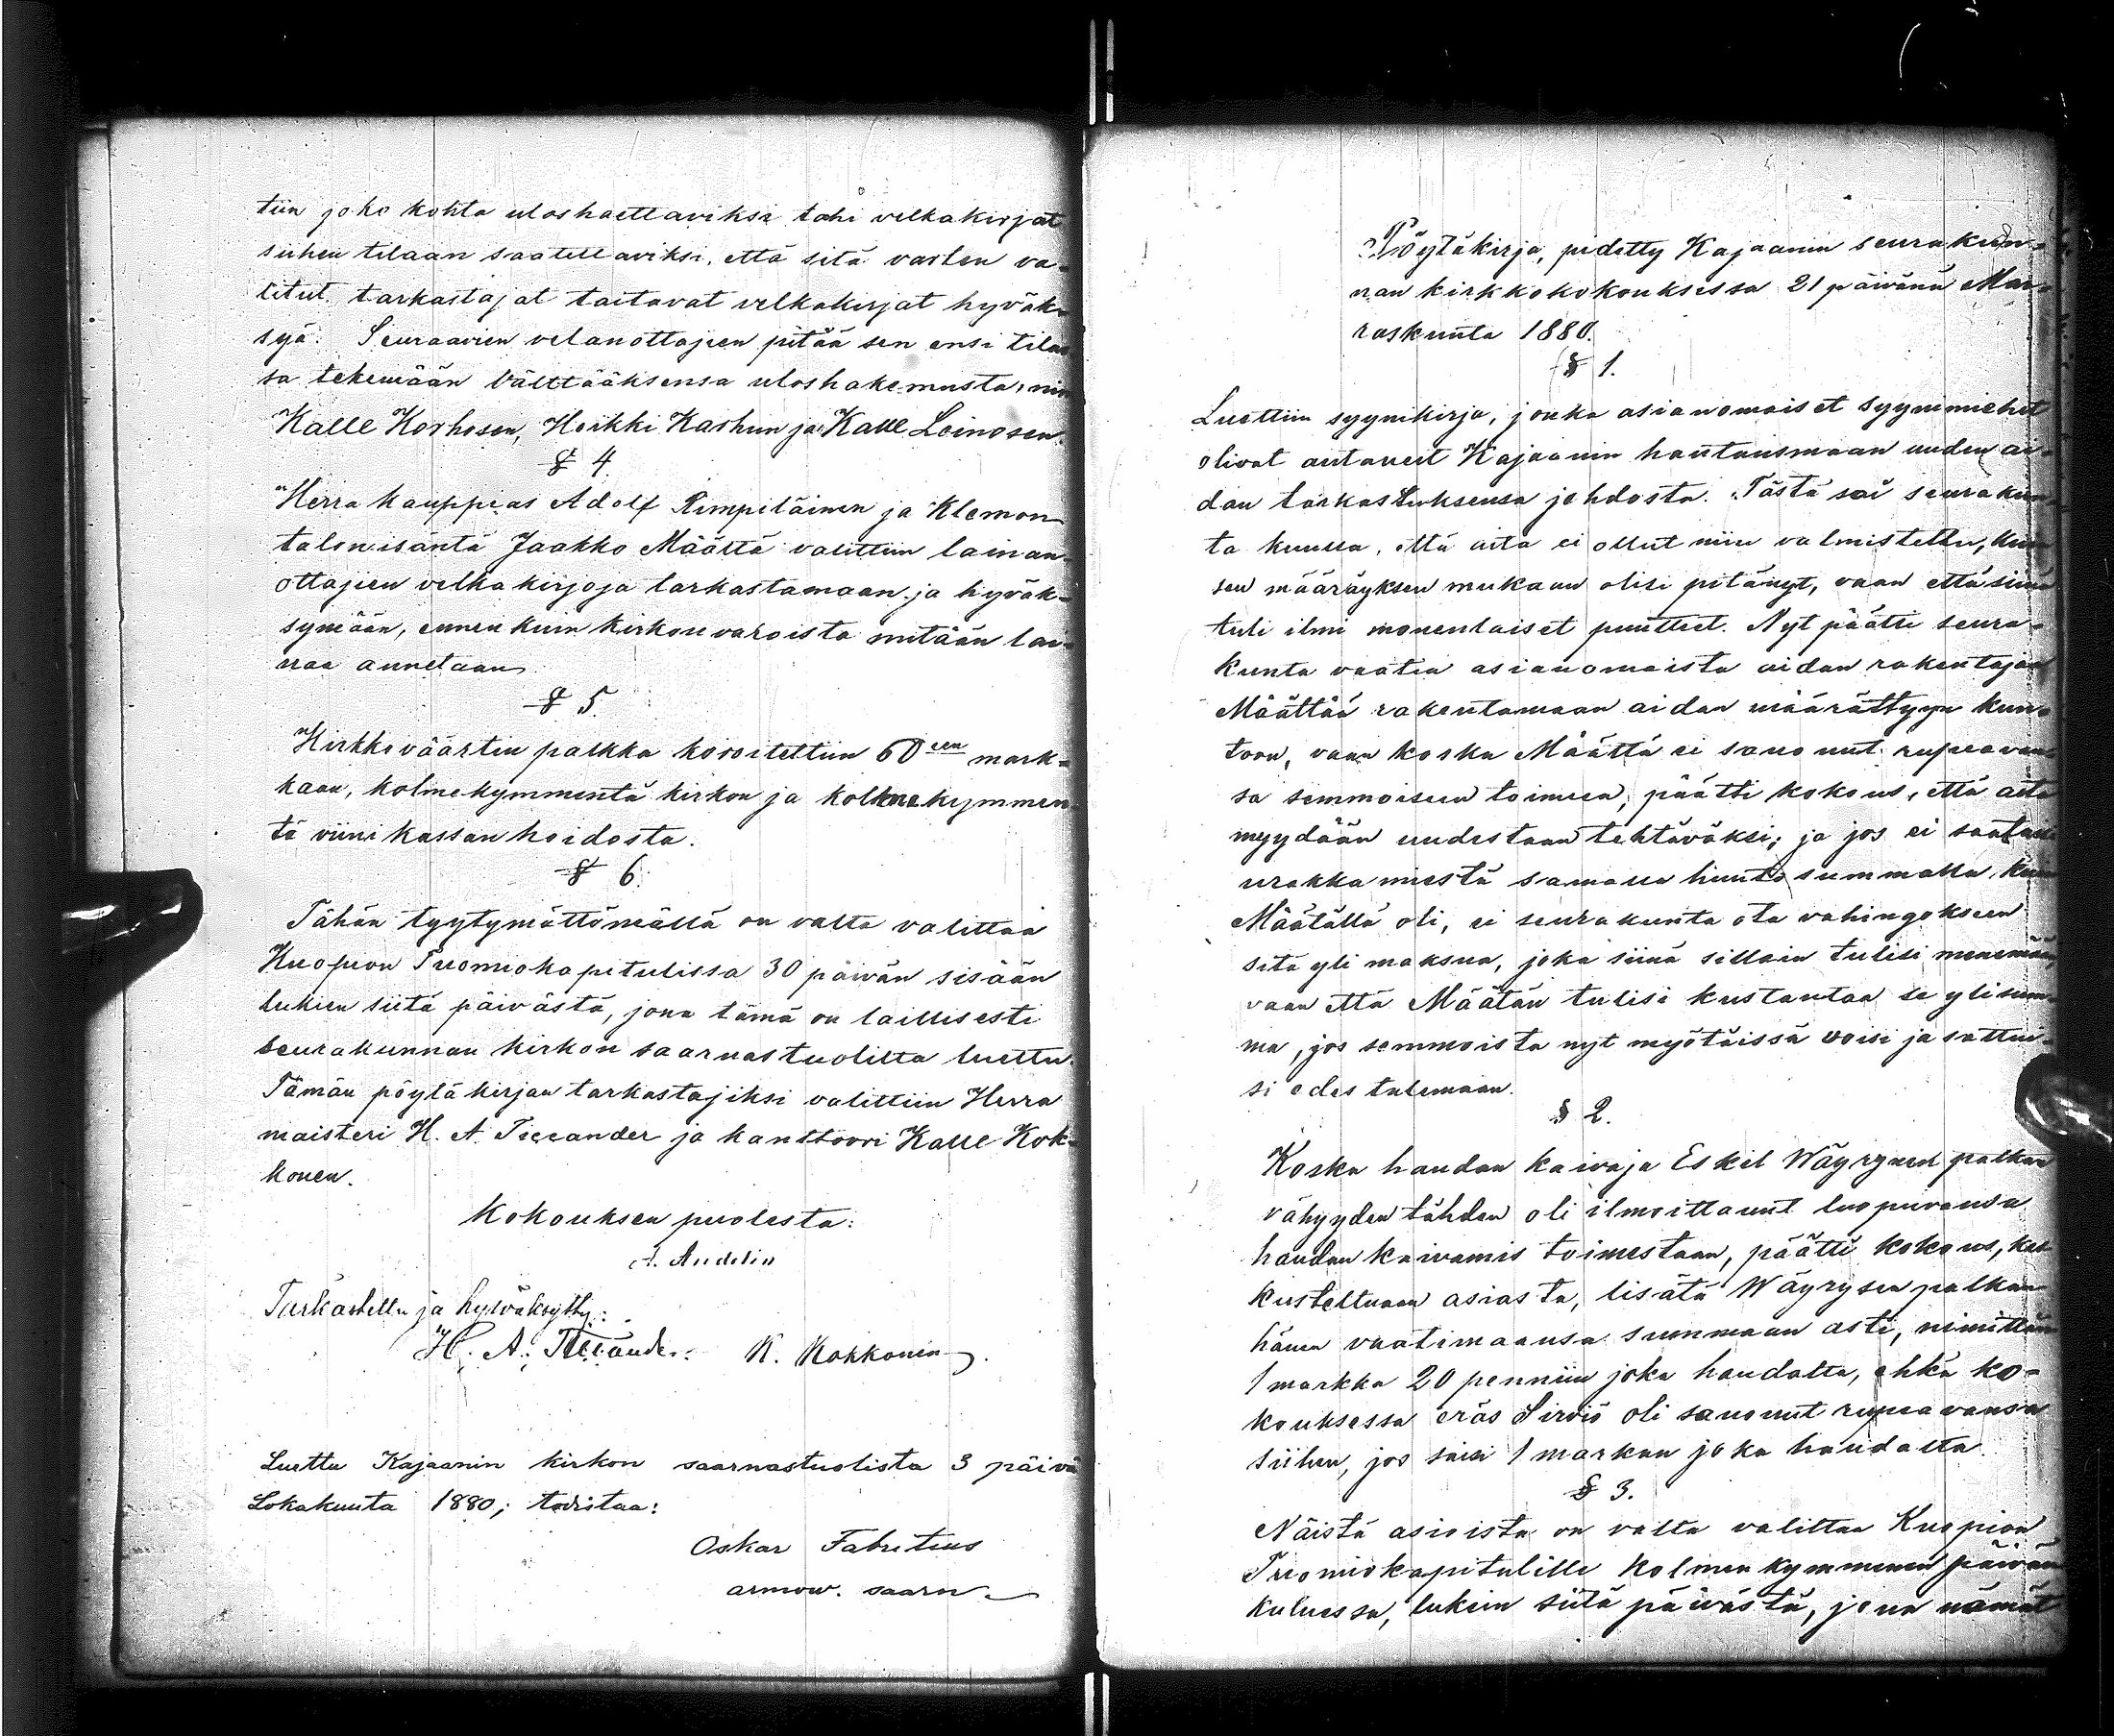 tiin joko kohta uloshaettaviksi tahi velkakirjat
siihen tilaan saatettaviksi, että sitä varten va-
litut tarkastajat taitavat velkakirjat hyväk-
syä. Seuraavien velanottajien pitää sen ensi tilas
sa tekemään välttääksensä uloshakemusta, nim
Kalle Korhosen, Heikki Karhun ja Kalle Leinosen.
§ 4.
Herra kauppias Adolf Rimpiläinen ja Klemon
talonisäntä Jaakko Määttä valittiin lainan-
ottajien velkakirjoja tarkastamaan ja hyväk-
symään, ennenkuin kirkonvaroista mitään lai-
naa annetaan
§ 5.
Kirkkoväärtin palkka koroitettiin 60een mark-
kaan, kolmekymmentä kirkon ja kolmekymmen
tä viinikassan hoidosta.
§ 6.
Tähän tyytymättömällä on valta valittaa
Kuopion Tuomiokapitulissa 30 päivän sisään
lukien siitä päivästä, jona tämä on laillisesti
seurakunnan kirkon saarnastuolilta luettu.
Tämän pöytäkirjan tarkastajiksi valittiin Herra
maisteri H. A. Tieeander ja kanttoori Kalle Kok-
konen.
Kokouksen puolesta:
A. Andelin
Tarkastettu ja hyväksytty:
H. A. Tieeander. K. Kokkonen.
Luettu Kajaanin kirkon saarnastuolista 3 päivä
Lokakuuta 1880; todistaa:
Oskar Fabritius
armow. saarn.
Pöytäkirja, pidetty Kajaanin seurakun-
nan kirkkokokouksessa 21 päivänä Mar-
raskuuta 1880.
§ 1.
Luettiin syynikirja, jonka asianomaiset syynimiehet
olivat antaneet Kajaanin hautausmaan uuden ai-
dan tarkastuksensa johdosta. Tästä sai seurakun
ta kuulla, että aita ei ollut niin valmistettu, kun
sen määräyksen mukaan olisi pitänyt, vaan että siinä
tuli ilmi monenlaiset puutteet. Nyt päätti seura-
kunta vaatia asianomaista aidan rakentajaa
Määttää rakentamaan aidan määrättyyn kun-
toon, vaan koska Määttä ei sanonut rupeavan-
sa semmoiseen toimeen, päätti kokous, että aita
myydään uudestaan tehtäväksi; ja jos ei saataisi
urakkamiestä samalla huutosummalla kuin
Määtällä oli, ei seurakunta ota vahingokseen
sitä yli maksua, joka siinä silloin tulisi menemään,
vaan että Määtän tulisi kustantaa se ylisum-
ma, jos semmoista nyt myötäissä voisi ja sattui-
si edes tulemaan.
§ 2.
Koska haudan kaivaja Eskil Wäyrynen palkan
vähyyden tähden oli ilmoittanut luopuvansa
haudan kaivamis toimestaan, päätti kokous, kes-
kusteltuaan asiasta, lisätä Wäyrysen palkan
hänen vaatimaansa summaan asti, nimittäin
1 markka 20 penniin joka haudalta, ehkä ko-
kouksessa eräs Sirviö oli sanonut rupeavansa
siihen, jos saisi 1 markan joka haudalta.
§ 3.
Näistä asioista on valta valittaa Kuopion
Tuomiokapitulille kolmenkymmenen päivän
kuluessa, lukein siitä päivästä, jona nämät